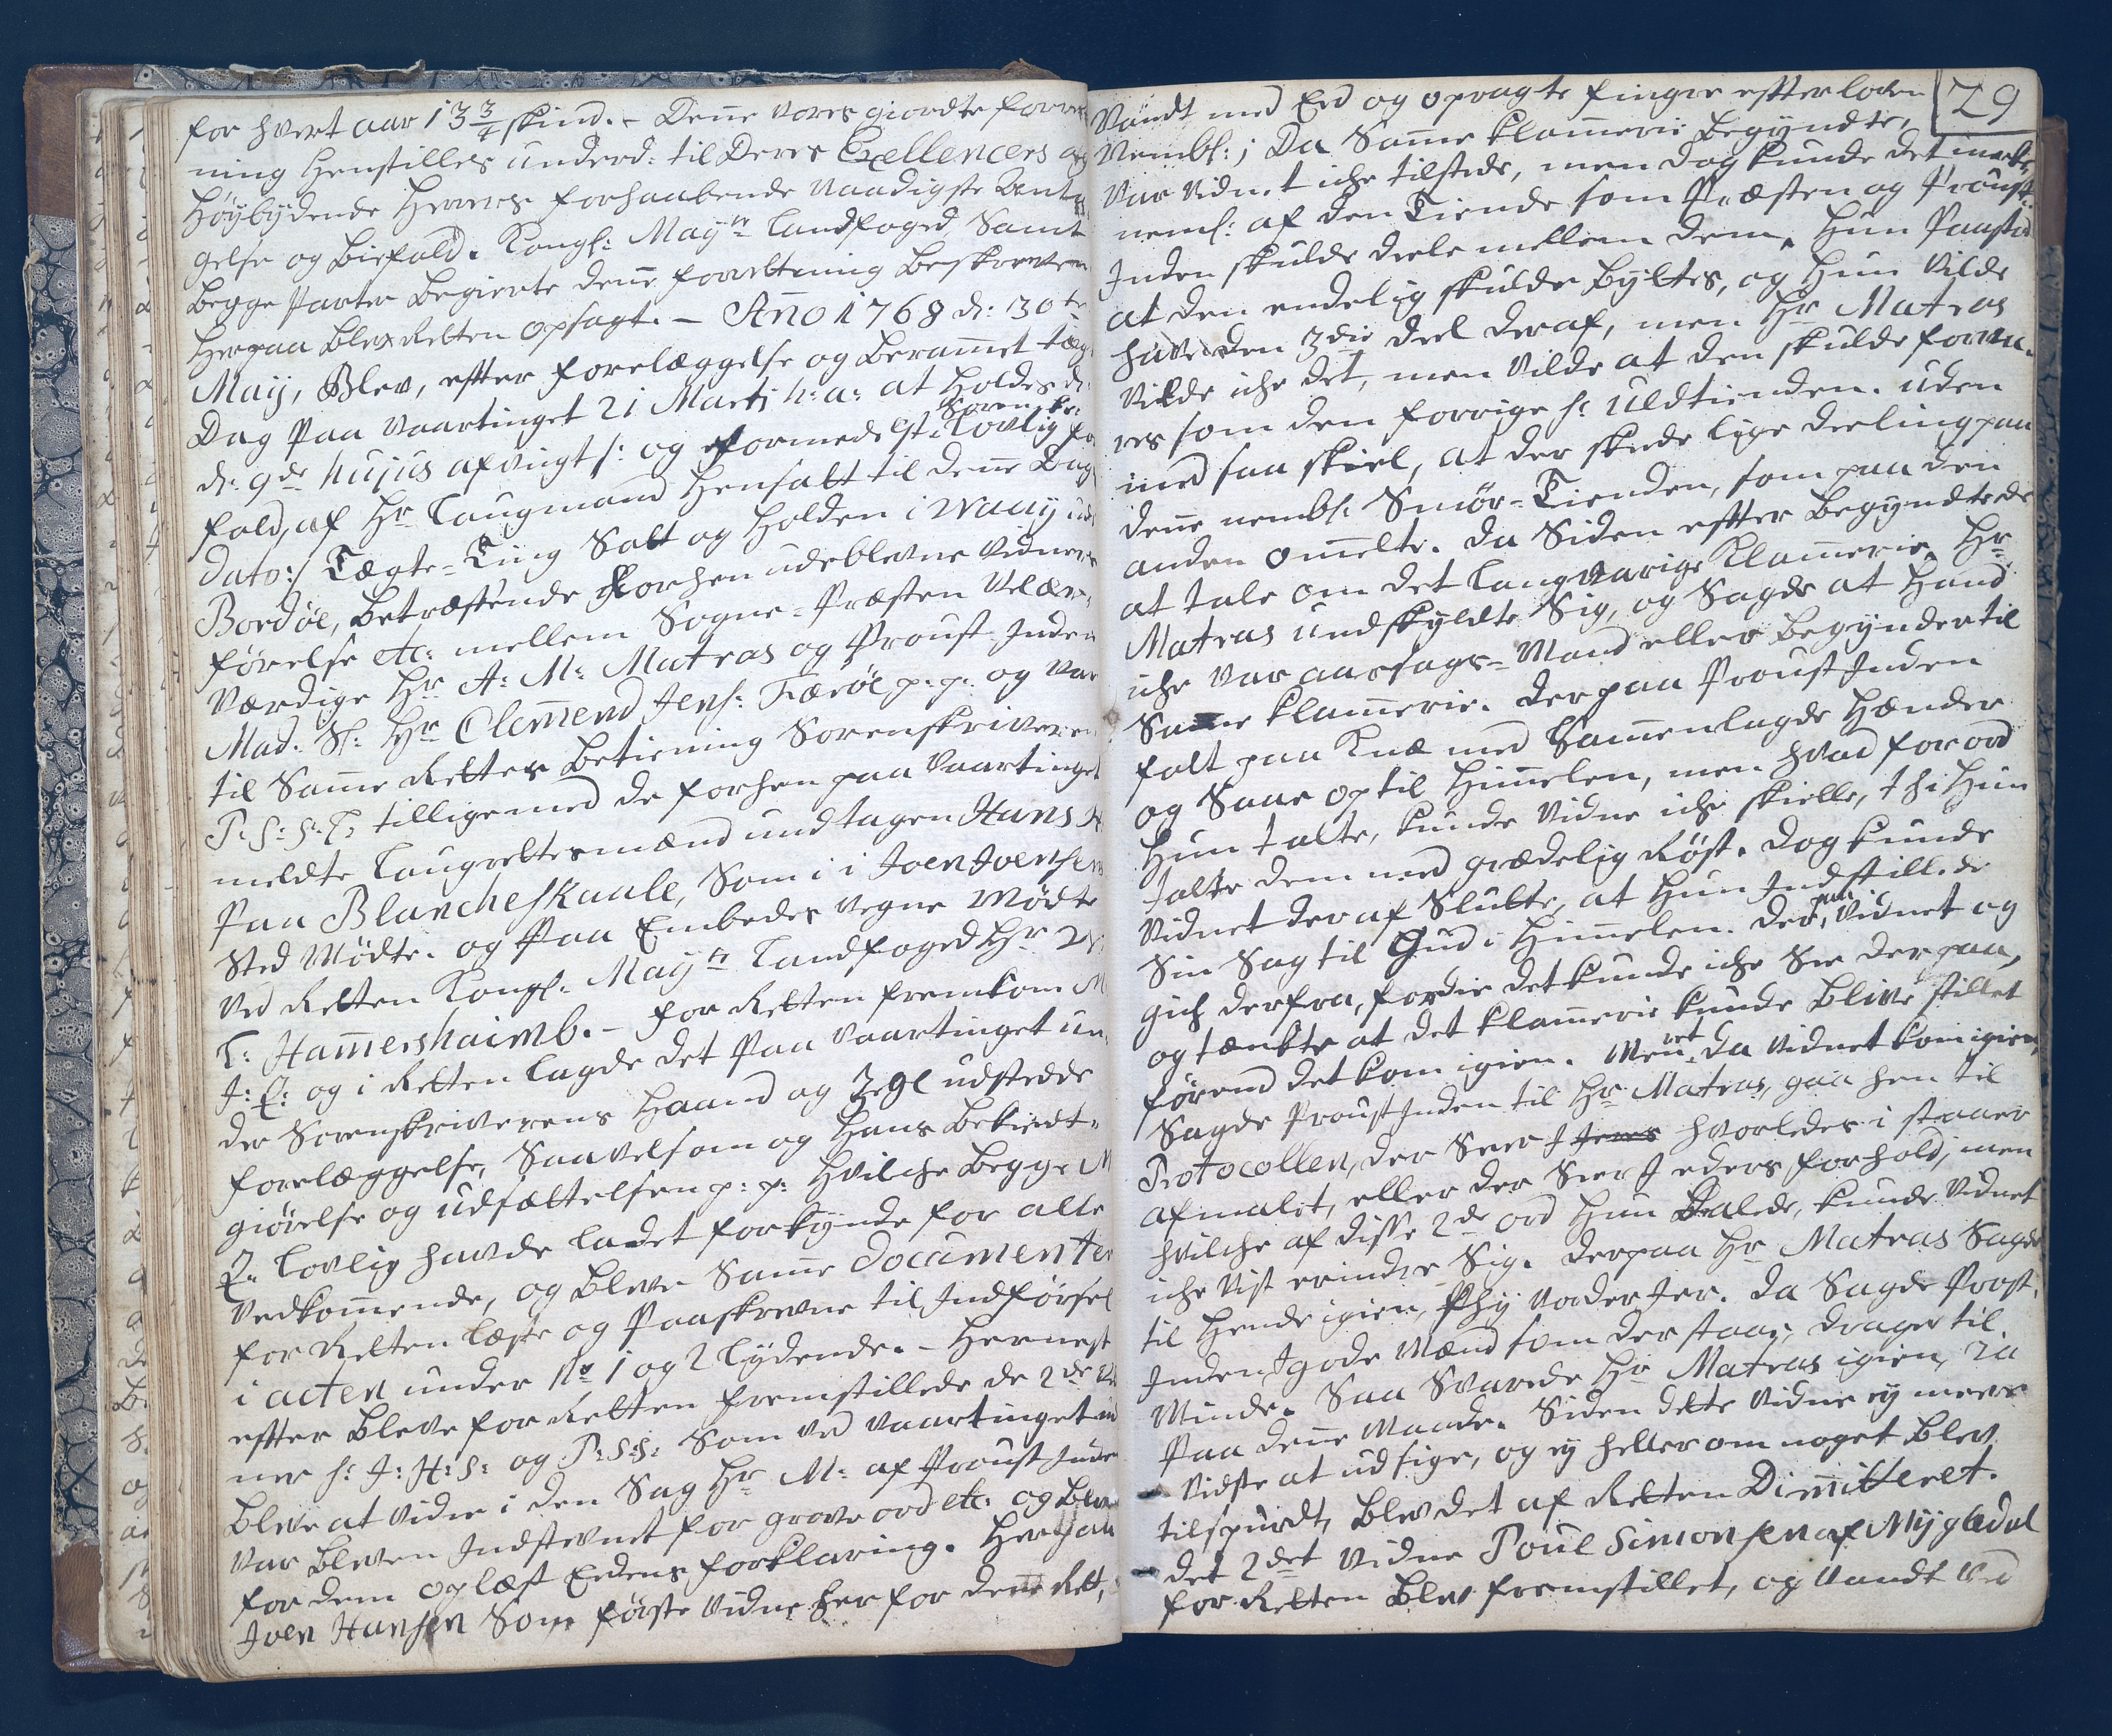 for hvert aar 13 3/4 skind. – Denne vores giordte forret
ning henstilles underd: til Deres Excellencers og
Høÿbÿdende Herrers forhaabende Naadigste Antag
gelse og Biefald. Kongl: Maÿts Landfoged, Samt
begge Parter begierte denne forretning beskreven
herpaa blev Retten opsagt. – Anno 1768 d: 30te
Maÿ, Blev, efter forelæggelse og beramet tægt
Dag paa Vaartinget 21 Martj h: a: at holdes d:
d: 9de hujus afvigt /: og formedelst Sorenskr: Lovlig for
fald, af Hr Laugmand hensatt til denne Dags
Dato:/ Tægte-Ting Satt og holden i Waaÿ udi
Bordøe, betræffende forhen udeblevne Vidners
førelse etc: mellem Sogne-Præsten Velær-
værdige Hr A: M: Matras og Proust-Inden
Mad. Sl: Hr Clemend Jens: Færøe p: p: og var
til Samme Rettes betiening Sorenskriveren
P: S: S: L: tillige med de forhen paa Vaartinget
meldte Laugrettesmænd undtagen Hans
Paa Blancheskaale, Som i Joen Joensens
Sted Mødte. og Paa Embeds vegne Mødte
ved Retten Kongl. Maÿts Landfoged Hr
L: Hamershaimb. – for Retten fremkom M
J: C: og i Retten lagde det paa Vaartinget un
der Sorenskriverens haand og Zegl udstedde
forelæggelse, Saavelsom og hans bekiendt-
giørelse og udsættelsen p: p: hvilche begge M
C: lovlig havde ladet forkÿnde for alle
vedkommende, og bleve Samme documenter
for Retten læste og Paaskrevne til Indførsel
i acten under No 1 og 2 lÿdende. – hernest
efter bleve for Retten fremstillede de 2de Vid
ner h: J: H: S: og P: S: S: Som ved Vaartinget
bleve at vidne i den Sag Hr M: af Proust Inden
var bleven Indstevnet for grove ord etc: og blev
for dem oplæst Eedens forklaring. herpaa
Joen Hansen Som første Vidne her for denne Rett,
29
Vandt med Eed og opragte finger efter loven
Nembl:; Da Samme klammerie begÿndte,
var vidnet iche tilstede, men dog kunde det merke,
neml: af den Tiende som Præsten og Proust-
Inden skulde deele mellem dem, hun paastod
at den endelig skulde bÿttes, og hun vilde
have den 3die deel deraf, men Hr Matras
vilde iche det, men vilde at den skulde forva-
res som den forrige h: uldtienden. uden
med saa skiel, at der skede lige deeling paa
denne nembl: Smør-Tienden, som paa den
anden ommelte. Da Siden efter begÿndtes de
at tale om det langvarige klammerie. Hr
Matras undskÿldte Sig, og Sagde at hand
iche var aarsags-Mand eller begÿnder til
Samme klammerie. Derpaa Proust Inden
falt paa knæ med Sammenlagde hænder
og Saae op til himmelen, men hvad for ord
hun talte, kunde vidne iche skielle, thi hun
talte dem med grædelig Røst. dog kunde
Vidnet deraf Slutte, at hun Indstillede
Sin Sag til Gud i himmelen. Der paa vidnet og
gich derfra, fordie det kunde iche See der paa,
og tænkte at det klammerie kunde blive stillet
førend det kom igien. Men da Vidnet kom igien
Sagde Proust Inden til Hr Matras, gaa hen til
Protocollen, der Seer I hvorledes i staaer
afmalet, eller der Seer I eders forhold; men
hvilche af disse 2de ord hun talede, kunde Vidnet
iche vist erindre Sig. Derpaa Hr Matras Sagde
til hende igien, Phÿ vorder Jer. Da Sagde Prost-
Inden, I gode Mænd som der staar, drager til
Minde. Saa Svarede Hr Matras igien, Ja
Paa denne Maade. Siden dette Vidne eÿ meere
Vidste at udsige, og eÿ heller om noget blev
tilspurdt, blev det af Retten Dimitteret.
det 2det Vidne Poul Simonsen af Mÿgledal
for Retten blev fremstillet, og vandt ved